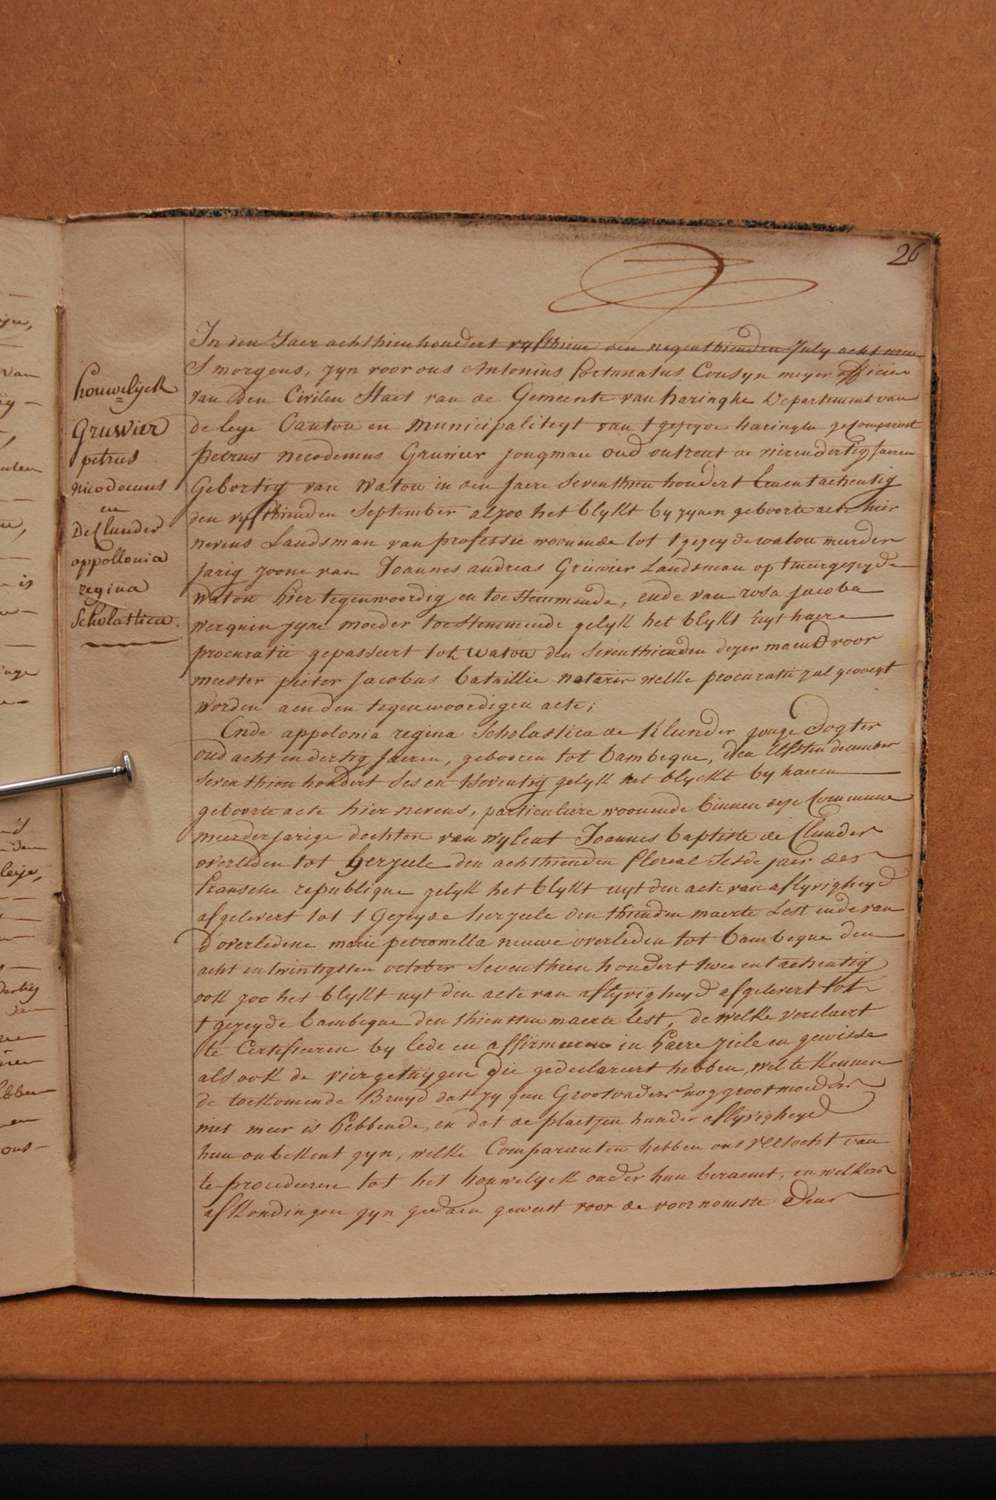 26
In den Jaer achthien houdert vyfthiene den negenthienden July acht uren
S morgens, zyn voor ons Antonius Fortunatus Cousyn meyer officier
van den Civilen Staet van de Gemeente van haringhe Departement van
de leye Canton en municipaliteyt van t gezeyde haringhe gecompareert
petrus nicodemus Gruwier jongman oud ontrent de vierendertig jaeren
Gebortig van Watou in den jaere seventhien hondert eenentachentig
den vyfthienden September alzoo het blykt by zynen geboorte acte hier
nevens Landsman van professie woonende tot t gezeyde watou meerder
jarig zoone van Joannes andreas Gruwier Landsman op t meergezeyde
Watou hier tegenwoordig en toestemmende, ende van rosa jacoba
Werquin zyne moeder toestemmende gelyk het blykt uyt haere
procuratie gepasseert tot Watou den seventhienden dezer maend voor
meester pieter jacobus bataillie notaris welke procuratie zal gevoegt
worden aen den tegenwoordigen acte;
Ende appolonia regina Scholastica de Klunder jonge Dogter
oud acht en dertig jaeren, geboren tot bambeque, den elfsten december
seventhien hondert ses en tseventig gelyk het blyckt by haeren
geboorte acte hier nevens, particuliere woonende binnen deze Commune
meerderjarige dochter van wylent Joannes baptiste de Clunder
overleden tot herzeele den achthienden floreal sesde jaer der
fransche republique gelyk het blykt uyt den acte van aflyvigheyd
afgelevert tot t Gezeyde herzeele den thienden maerte Lest ende van
d'overledene marie petronella nieuwe overleden tot bambeque den
acht en twintigsten october seventhien hondert twee en tachentig
ook zoo het blykt uyt den acte van aflyvigheyd afgelevert tot
t gezeyde bambeque den thiensten maerte lest, de welke verclaert
te Certifieren by eede en affirmeren in haere ziele en gewisse
als ook de vier getuygen die gedeclareert hebben, wel te kennen
de toekomende Bruyd dat zy geen Grootvader nog grootmoeder
niet meer is hebbende, en dat de plaetzen hunder aflyvigheyd
hun onbekent zyn, welke Comparanten hebben ons versocht van
te procederen tot het houwelyck onder hun beraemt, en welkers
afkondingen zyn gedaen geweest voor de voornomste deur
houwelyck
Gruwier
petrus
nicodemus
en
De Clunder
appollonia
regina
Scholastica.